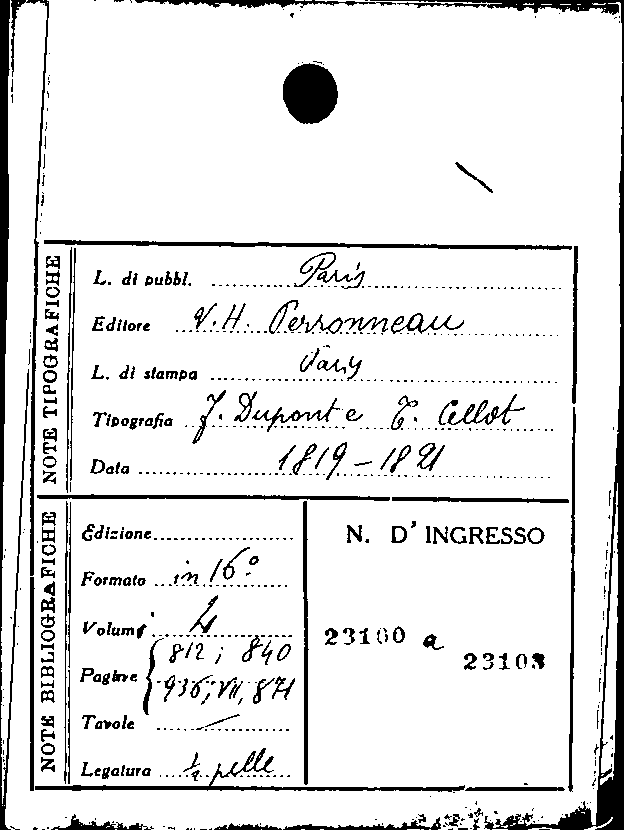 NOTE TIPOGRAFICHE
L. di pubbl. Paris
Editore V. H. Perronneau
L. di stampa Paris
Tipografia J. Dupont e E. Cellot
Data 1819-1821
NOTE BIBLIOGRAFICHE
Edizione
Formato in 16°
Volumi 4
Pagine 812; 840
936; VII, 871
Tavole
Legatura ½ pelle
N. D' INGRESSO
23100 a
23103